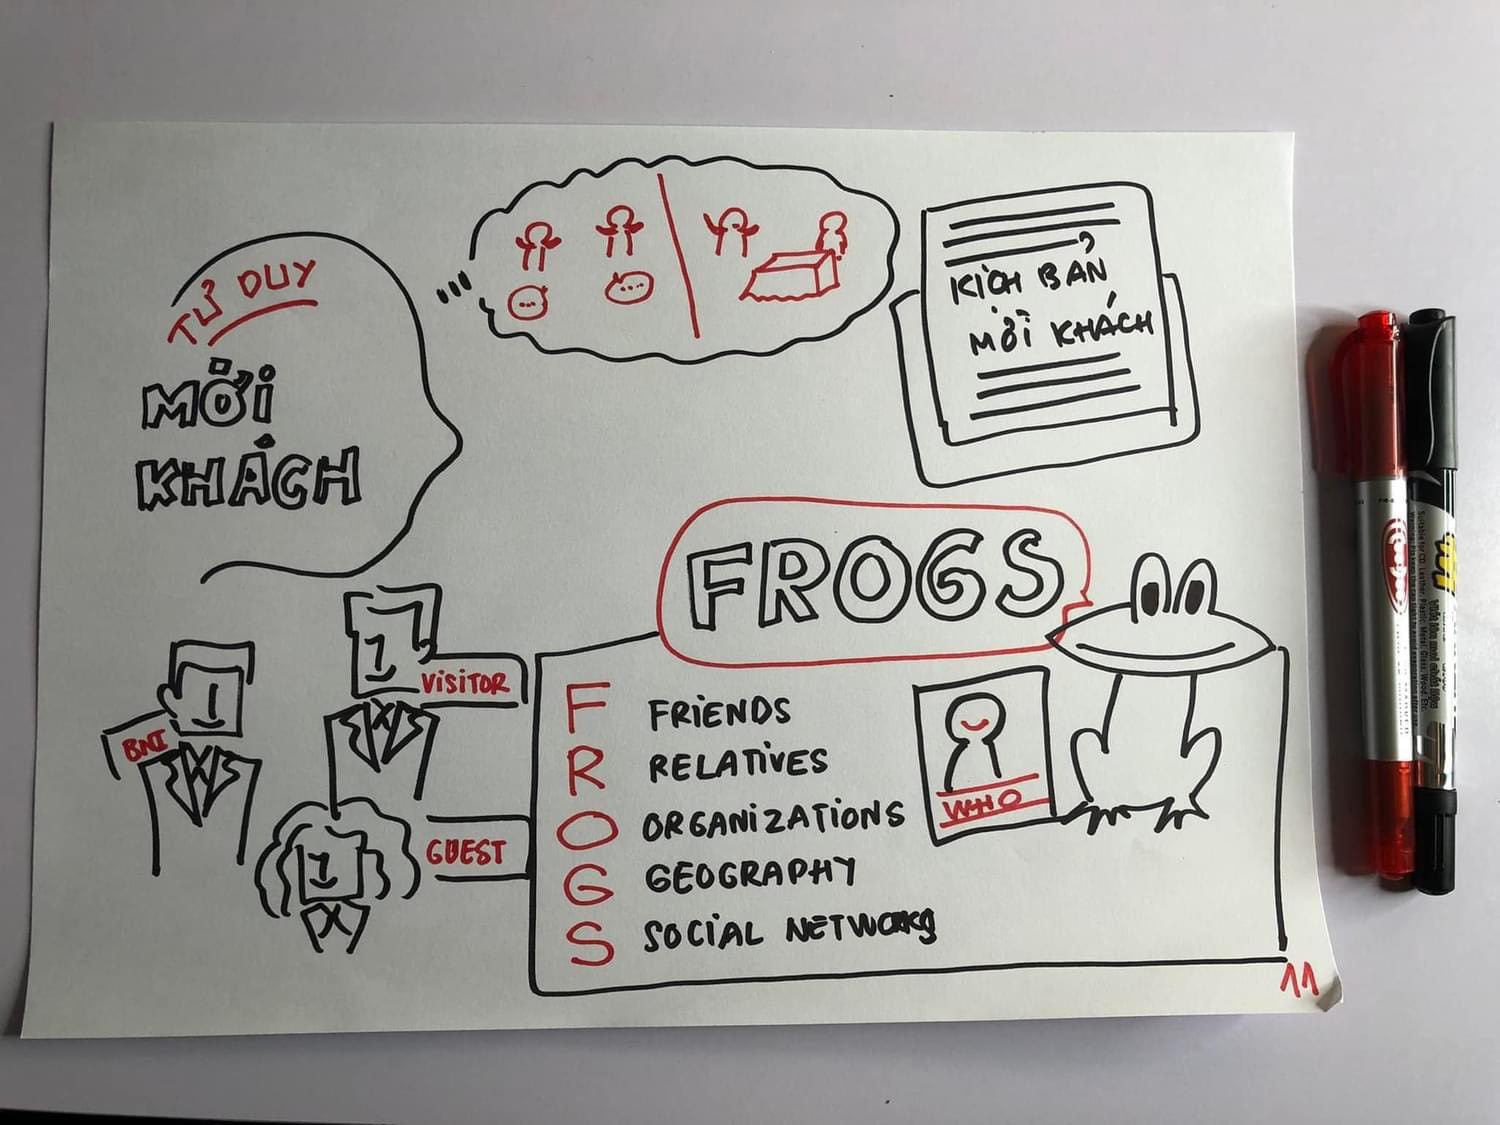 TƯ DUY
MỜI
KHÁCH
KỊCH BẢN
MỜI KHÁCH
FROGS
BNI
VISITOR
GUEST
F FRIENDS
R RELATIVES
O ORGANIZATIONS
G GEOGRAPHY
S SOCIAL NETWORKS
WHO
11